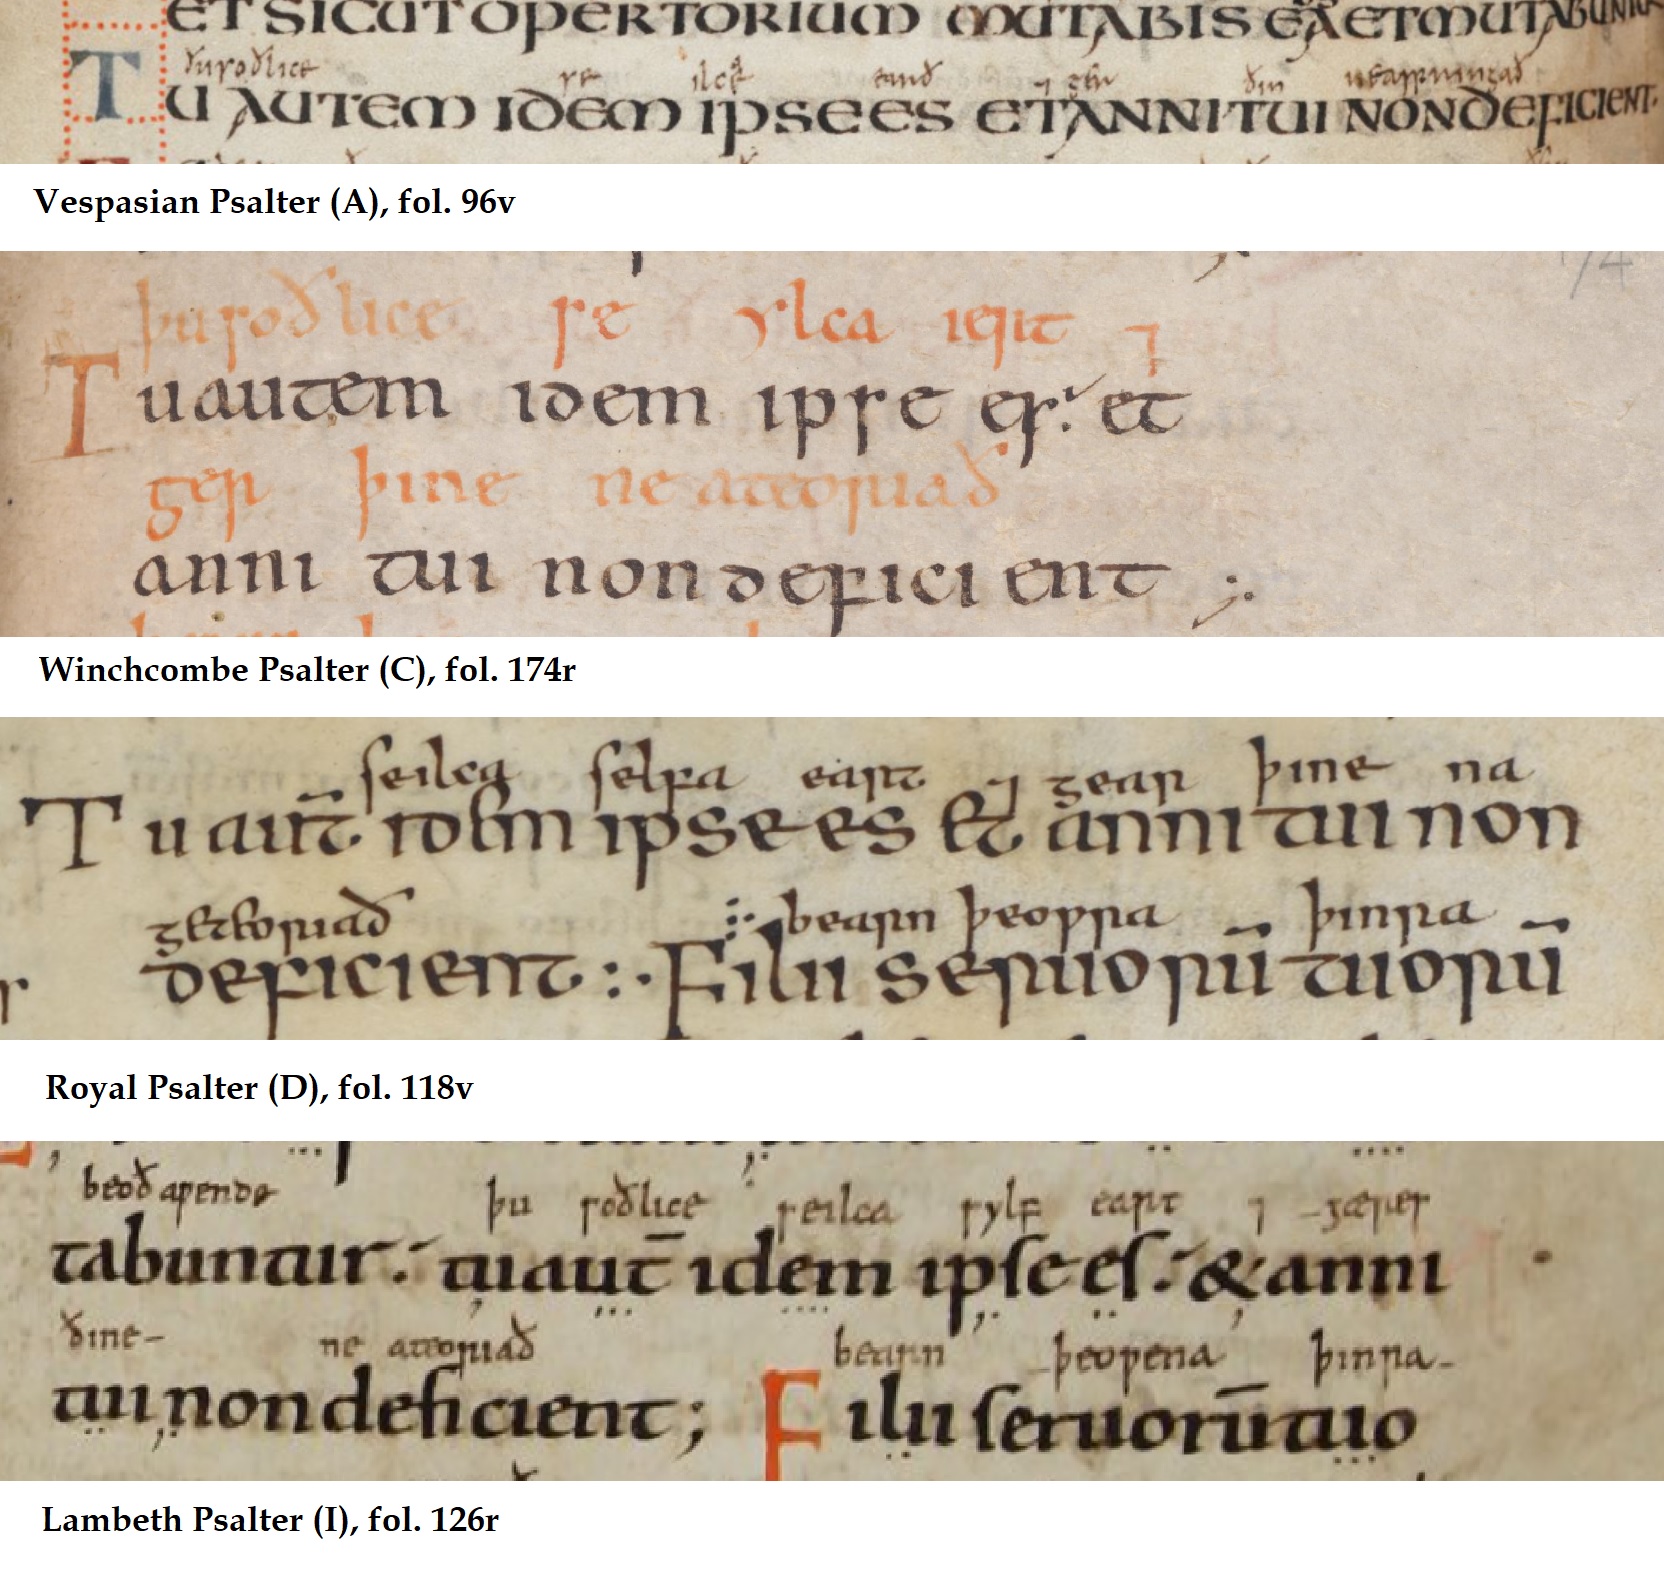 ET SICUT OPERTORIUM MUTABIS EA ET MUTABUNTUR
ðu soðlice se ilca earð ⁊ ger ðin neaspringað
TU AUTEM IDEM IPSE ES ET ANNI TUI NON DEFICIENT·
Vespasian Psalter (A), fol. 96v
174
þu soðlice se ylca 
 ⁊
Tu autem idem ipse es: et
ger þine ne ateoriað
anni tui non deficient
Winchcombe Psalter (C), fol. 174r
se ilca selfa eart ⁊ gear þine na
Tu aut̄ idem ipse es et anni tui non
geteoriað bearn þeowra þinra
deficient :· Filii seruorū tuorū
Royal Psalter (D), fol. 118v
beoð awende þu soðlice se ilca sylf eart ⁊ gæres
tabuntur: tu aut̄ idem ipse es: & anni
ðine ne ateoriað bearn þeowena þinra
tui non deficient; Filii seruorū tuo
Lambeth Psalter (I), fol. 126r